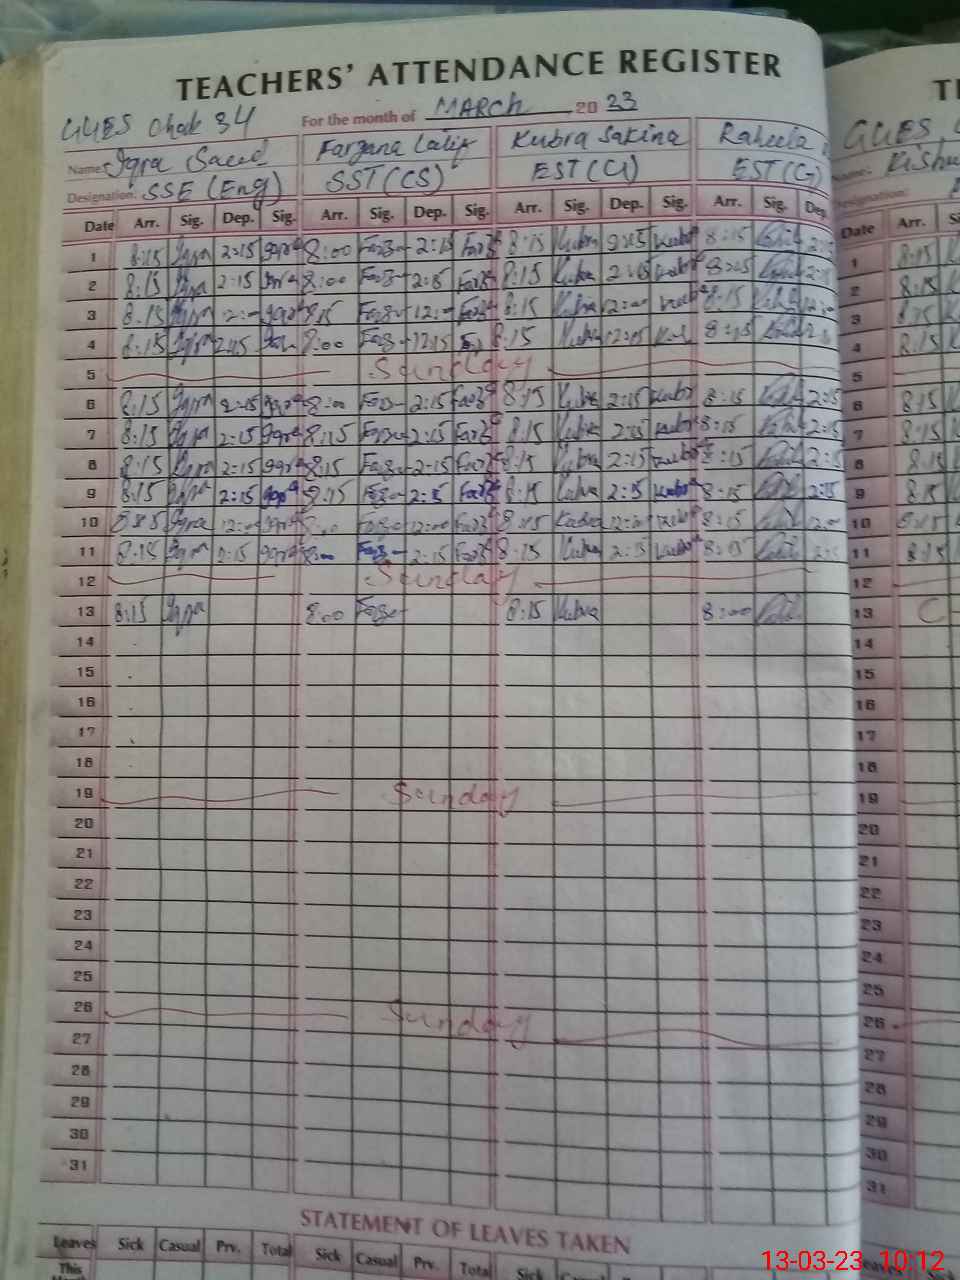 TEACHERS' ATTENDANCE REGISTER
GGES Chak 34 For the month of MARCH 2023
Name: Iqra Saeed Farzana Latif Kubra Sakina Raheela
Designation: SSE (Eng) SST (CS) EST (CI) EST (G)
Date Arr. Sig. Dep. Sig. Arr. Sig. Dep. Sig. Arr. Sig. Dep. Sig. Arr. Sig. Dep. Date Arr.
1 8:15 Iqra 2:15 Iqra 8:00 Farz 2:15 Farz 8:15 Kubra Kubra 8:15 1 8:15
2 8:15 Iqra 2:15 Iqra 8:00 Farz 2:15 Farz 8:15 Kubra 2:15 Kubra 8:15 2 8:15
3 8:15 Iqra 12:00 Iqra 8:15 Farz 12:00 Farz 8:15 Kubra 12:00 Kubra 8:15 3 8:15
4 8:15 Iqra 8:00 Farz 12:15 8:15 Kubra 12:15 8:15 4 8:15
5 Sunday 5
6 8:15 Iqra 2:15 Iqra 8:00 Farz 2:15 Farz 8:15 Kubra 2:15 Kubra 8:15 2:15 6 8:15
7 8:15 Iqra 2:15 Iqra 8:15 Farz 2:15 Farz 8:15 Kubra 2:15 Kubra 8:15 2:15 7 8:15
8 8:15 Iqra 2:15 Iqra 8:15 Farz 2:15 Farz 8:15 Kubra 2:15 Kubra 8:15 8 8:15
9 8:15 Iqra 2:15 Iqra 8:15 Farz 2:15 Farz 8:15 Kubra 2:15 Kubra 8:15 2:15 9 8:15
10 8:15 Iqra 12:00 Iqra 8:00 Farz 12:00 Farz 8:15 Kubra 12:00 Kubra 8:15 12:00 10 8:15
11 8:15 Iqra 2:15 Iqra 8:00 Farz 2:15 Farz 8:15 Kubra 2:15 Kubra 8:15 11 8:15
12 Sunday 12
13 8:15 Iqra 8:00 Farz 8:15 Kubra 8:00 13 C
14 14
15 15
16 16
17 17
18 18
19 Sunday 19
20 20
21 21
22 22
23 23
24 24
25 25
26 Sunday 26
27 27
28 28
29 29
30 30
31 31
STATEMENT OF LEAVES TAKEN
Leaves Sick Casual Prv. Total Sick Casual Prv. Total Sick
This
13-03-23 10:12